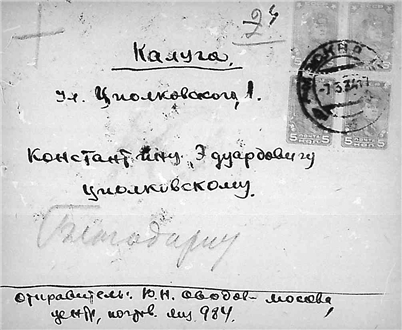 24
Калуга.
ул. Циолковского, 1.
Константину Эдуардовичу
Циолковскому.
Благодарил
отправитель: Ю.Н. Москва,
центр, почтов. ящ. 984.